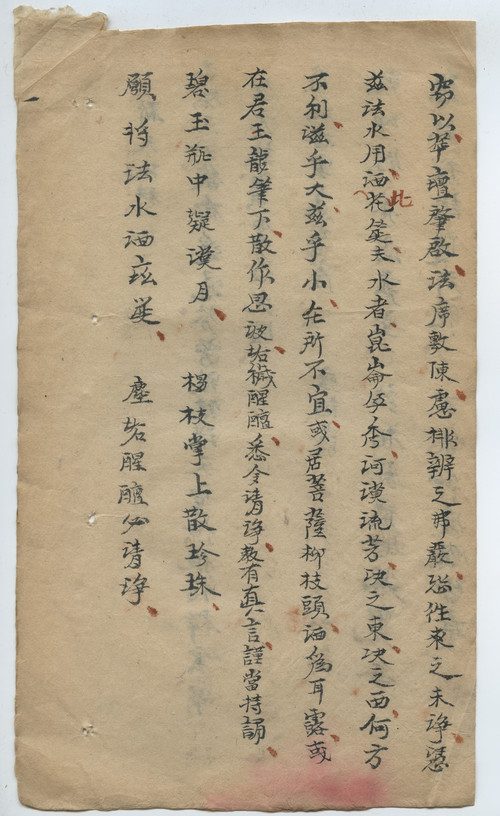 窃以華壇肇啟法席敷陳慮排辦之弗嚴恐徃来之未诤憑
茲法水用洒花筵夫水者崑崙孕秀河漢流芳决之東决之西何方
此
不利滋乎大茲乎小在所不宜或居菩薩柳枝頭洒為耳露或
在君王龍筆下散作恩波垢穢醒膻悉令清净教有真言謹當持誦
碧玉瓶中凝漢月 楊枝掌上散珍珠
願将法水洒玆筵 塵垢腥膻必清诤